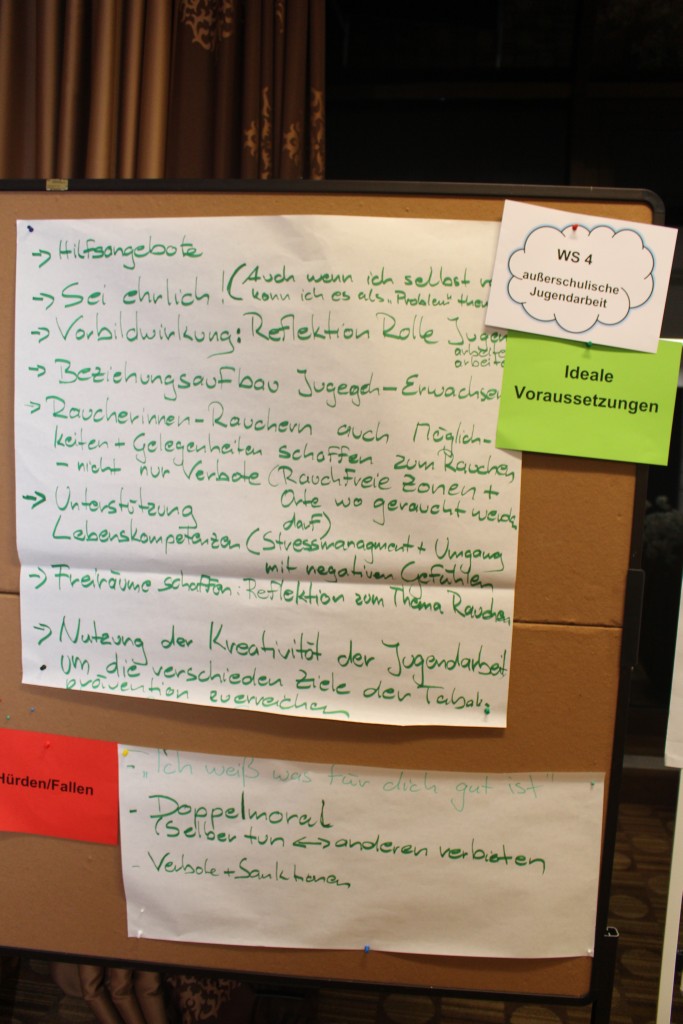 → Hilfsangebote
→ Sei ehrlich! (Auch wenn ich selbst
kann ich es als "Problem"
→ Vorbildwirkung: Reflektion Rolle Jugen
arbeite
arbeite
→ Beziehungsaufbau Jugegeh-Erwachsen
→ Raucherinnen-Rauchern auch Möglich-
keiten + Gelegenheiten schaffen zum Rauchen
- nicht nur Verbote (Rauchfreie Zonen +
Orte wo geraucht werden
darf)
→ Unterstützung
Lebenskompetenzen (Stressmanagment + Umgang
mit negativen Gefühlen
→ Freiräume schaffen: Reflektion zum Thema Rauchen
→ Nutzung der Kreativität der Jugendarbeit
um die verschieden Ziele der Tabak-
prävention zuerreichen
WS 4
außerschulische
Jugendarbeit
Ideale
Voraussetzungen
Hürden/Fallen
- "Ich weiß was für dich gut ist"
- Doppelmoral
(Selber tun <-> anderen verbieten
- Verbote + Sanktionen